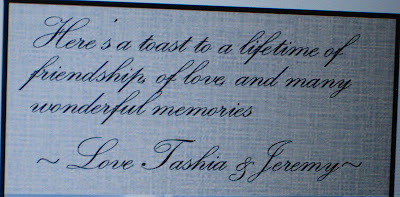 Here's a toast to a lifetime of
friendship, of love, and many
wonderful memories
~ Love Tashia & Jeremy ~